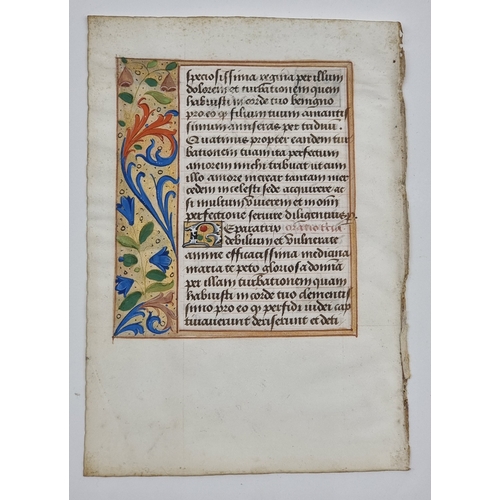 speciosissima regina per illum
dolorem et turbationem quem
habuisti in corde tuo benigno
pro eo q filium tuum amanti
simum miseras per tradui.
Quatinus propter eandem tur
bationem tuam ita perfectum
amorem michi tribuat ut cum
illo amore merear tantam mer
cedem in celesti sede acquirere ac
si multum viverem et in omni
perfectione servire diligencius.
Reparatrix oratio tercia
debilium et vulnerate
anime efficacissima mediana
maria te peto gloriosa domina
per illam turbationem quam
habuisti in corde tuo clementis
simo pro eo q perfidi iudei cap
tivaverunt deriserunt et deti